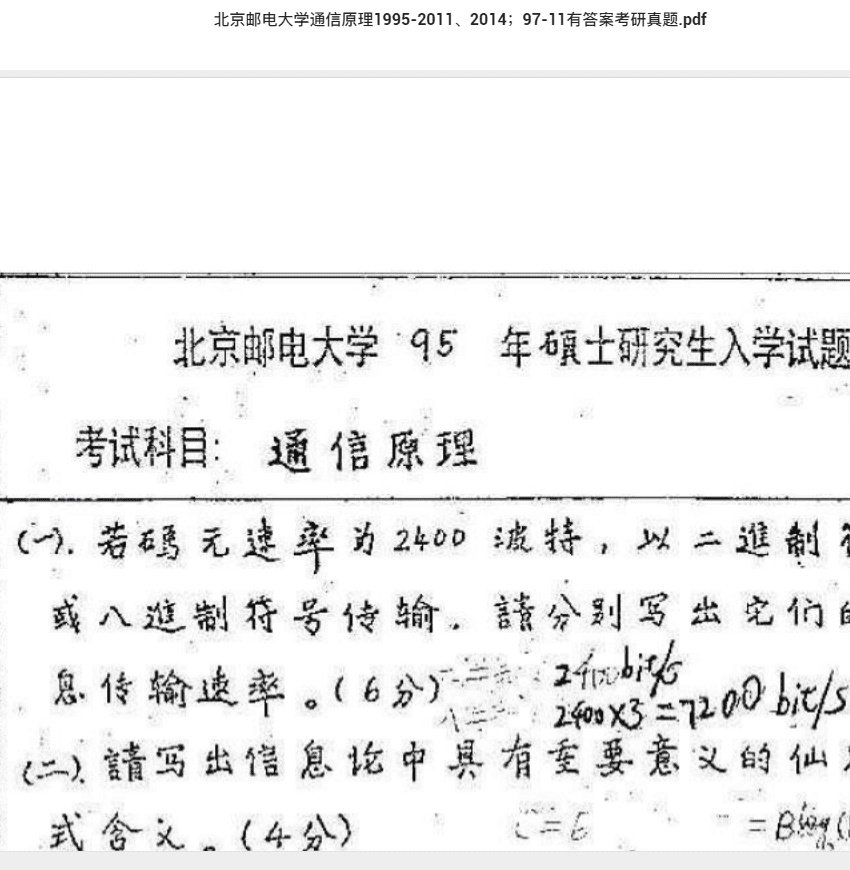 北京邮电大学通信原理1995-2011、2014；97-11有答案考研真题.pdf
北京邮电大学 95 年硕士研究生入学试题
考试科目: 通信原理
(一). 若码元速率为2400 波特, 以二進制
或八進制符号传输. 請分别写出它们
息传输速率。(6分)
2400bit/s
2400X3=7200bit/s
(二). 請写出信息论中具有重要意义的仙
式含义。(4分)